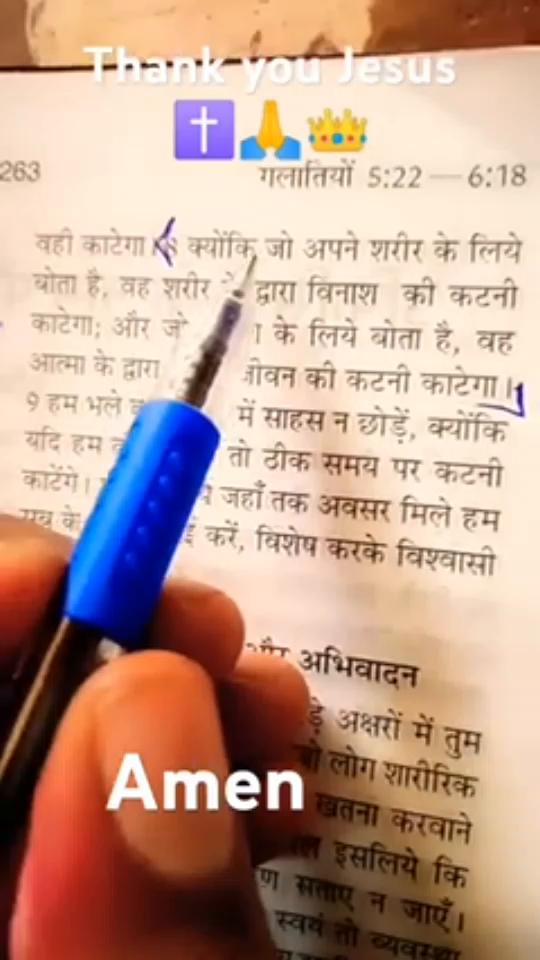 Thank you Jesus
263 गलातियों 5:22 — 6:18
वही काटेगा। 8 क्योंकि जो अपने शरीर के लिये
बोता है, वह शरीर के द्वारा विनाश की कटनी
काटेगा; और जो के लिये बोता है, वह
आत्मा के द्वारा जीवन की कटनी काटेगा।
9 हम भले में साहस न छोड़ें, क्योंकि
यदि हम तो ठीक समय पर कटनी
काटेंगे। जहाँ तक अवसर मिले हम
सब के करें, विशेष करके विश्वासी
और अभिवादन
अक्षरों में तुम
लोग शारीरिक
Amen
खतना करवाने
इसलिये कि
सताए न जाएँ।
स्वयं तो व्यवस्था